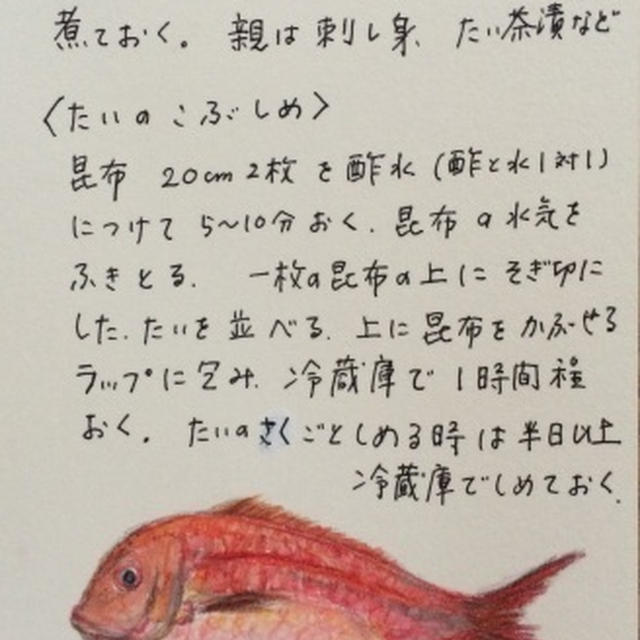 煮ておく。 親は刺し身、たい茶漬など
〈たいのこぶじめ〉
昆布 20cm 2枚を酢水(酢と水1対1)
につけて 5〜10分おく、昆布の水気を
ふきとる、 一枚の昆布の上にそぎ切に
した、たいを並べる、上に昆布をかぶせる
ラップに包み、冷蔵庫で1時間程
おく。 たいのさくごとしめる時は半日以上
冷蔵庫でしめておく、